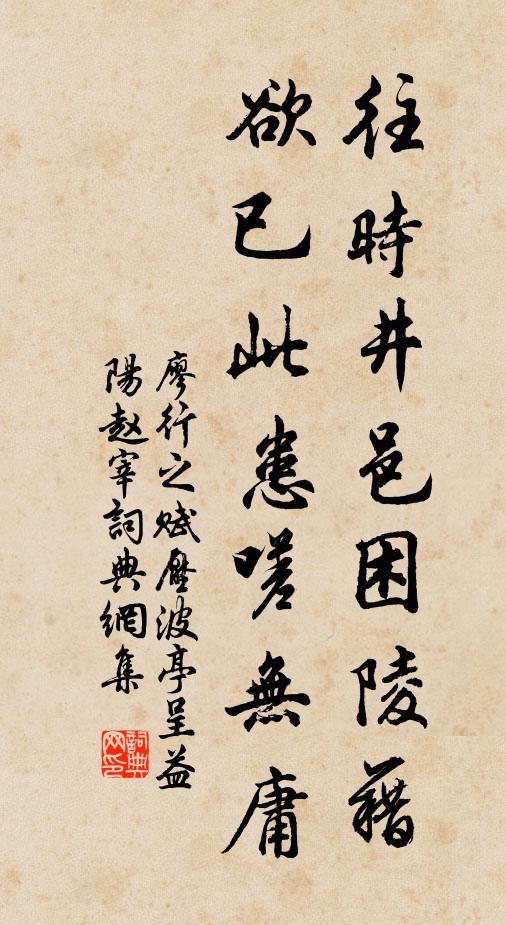 往時井邑困陵藉
欲已此患嗟無庸
廖行之賦壓波亭呈益
陽趙宰詞典網集
詞典網印